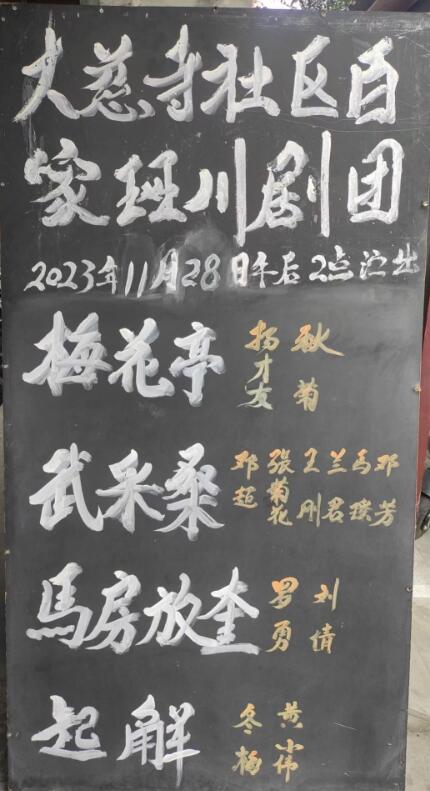 大慈寺社区百
家班川剧团
2023年11月28日午后2点演出
梅花亭 杨才友 秋菊
武采桑 邓超 张菊花 王刚 兰君 马璞 邓芳
馬房放奎 罗勇 刘倩
起解 冬梅 黄小伟